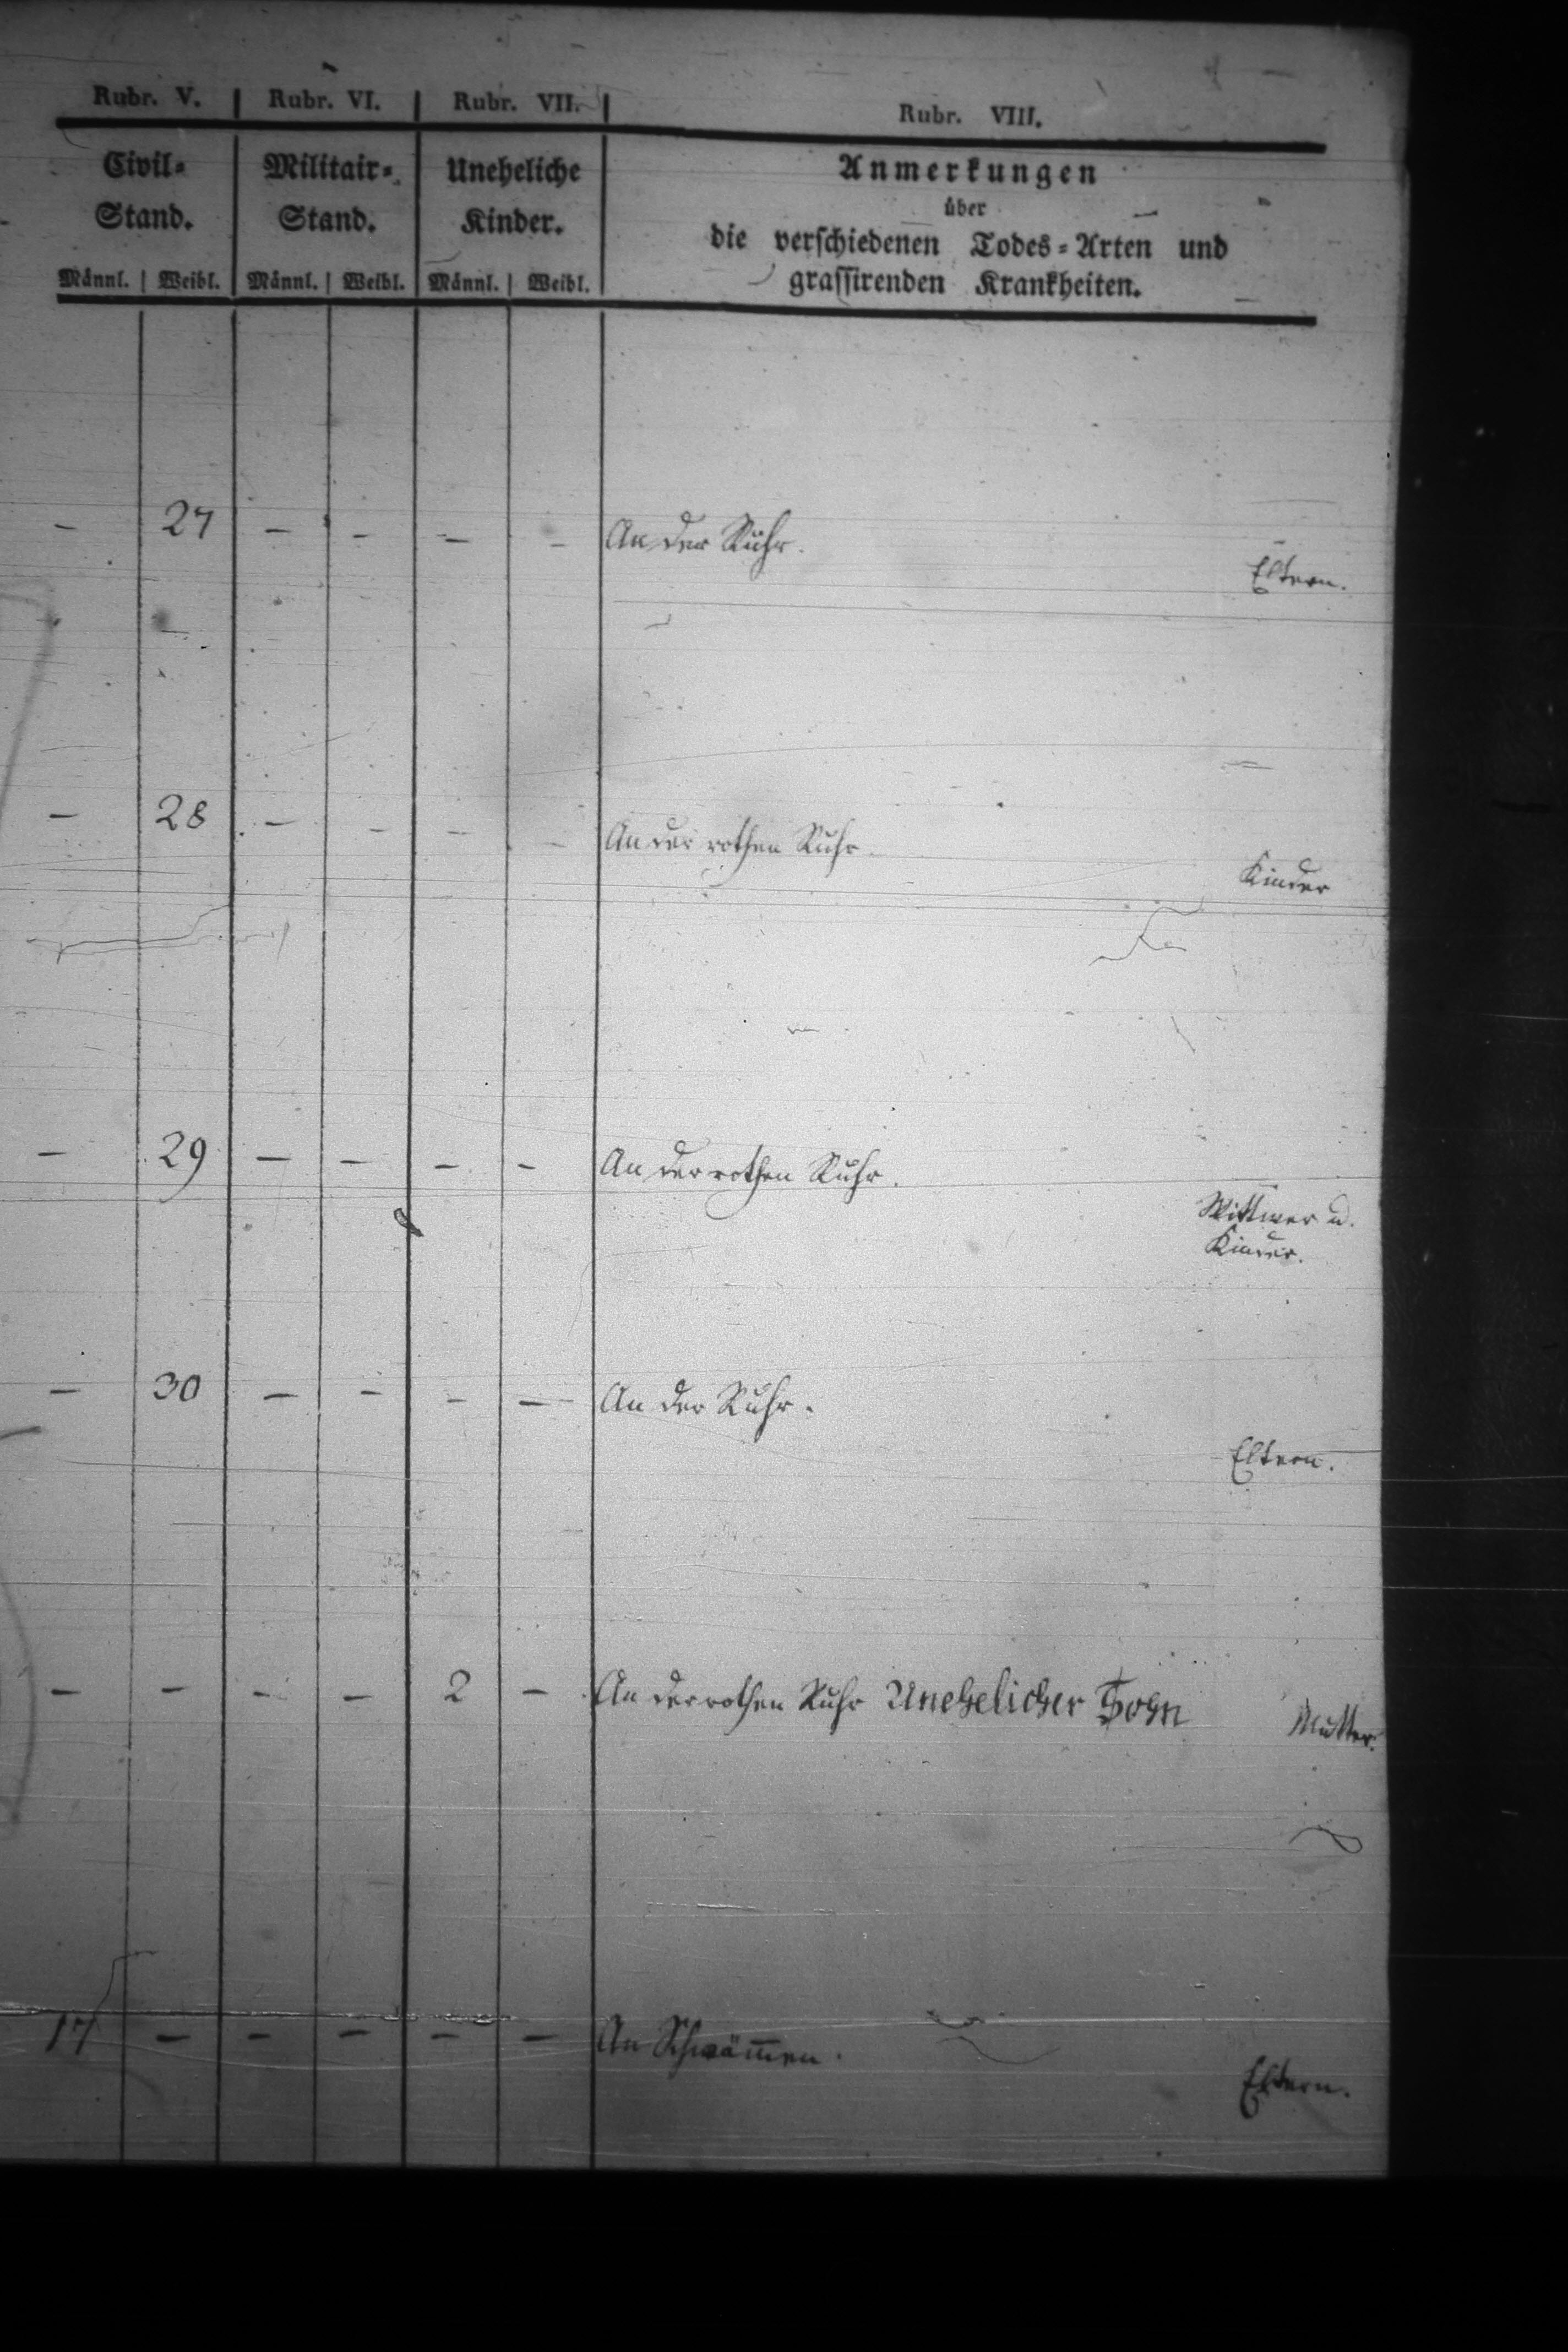 Rubr. V. Rubr. VI. Rubr. VII. Rubr. VIII.
Civil= Militair= Uneheliche Anmerkungen
Stand. Stand. Kinder. über
die verschiedenen Todes=Arten und
Männl. Weibl. Männl. Weibl. Männl. Weibl. grassirenden Krankheiten.
- 27 - - - - An der Ruhr.
Eltern.
- 28 - - - - An der rothen Ruhr.
Kinder
- 29 - - - - An der rothen Ruhr.
Wittwer u.
Kinder.
- 30 - - - - An der Ruhr.
Eltern.
- - - - 2 - An der rothen Ruhr Unehelicher Sohn
Mutter.
17 - - - - - An Schwäm̅en.
Eltern.